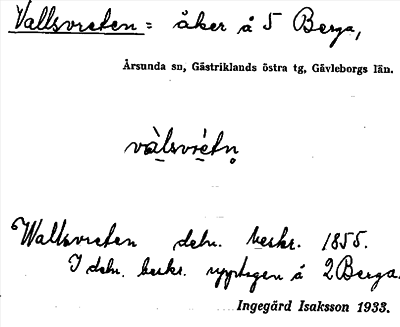 Vallsvreten = åker å 5 Berga,
Årsunda sn, Gästriklands östra tg, Gävleborgs län.
vàlsvrètn̥
Wallsvreten deln. beskr. 1855.
I deln. beskr. upptagen å 2 Berga.
Ingegärd Isaksson 1933.